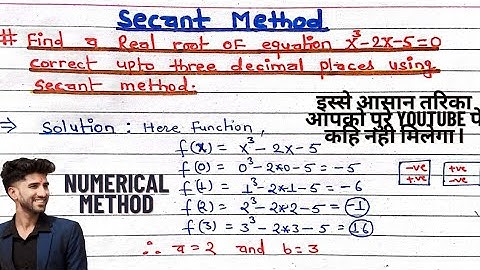 Secant Method
# Find a Real root of equation x³-2x-5=0
correct upto three decimal places using
secant method.
⇒ Solution : Here Function,
f(x) = x³-2x-5
f(0) = 0³-2*0-5 = -5
f(1) = 1³-2*1-5 = -6
f(2) = 2³-2*2-5 = -1
f(3) = 3³-2*3-5 = 16
∴ a=2 and b=3
इस्से आसान तरिका
आपको पुरे YOUTUBE पे
कहि नही मिलेगा।
-ve +ve
+ve -ve
NUMERICAL
METHOD